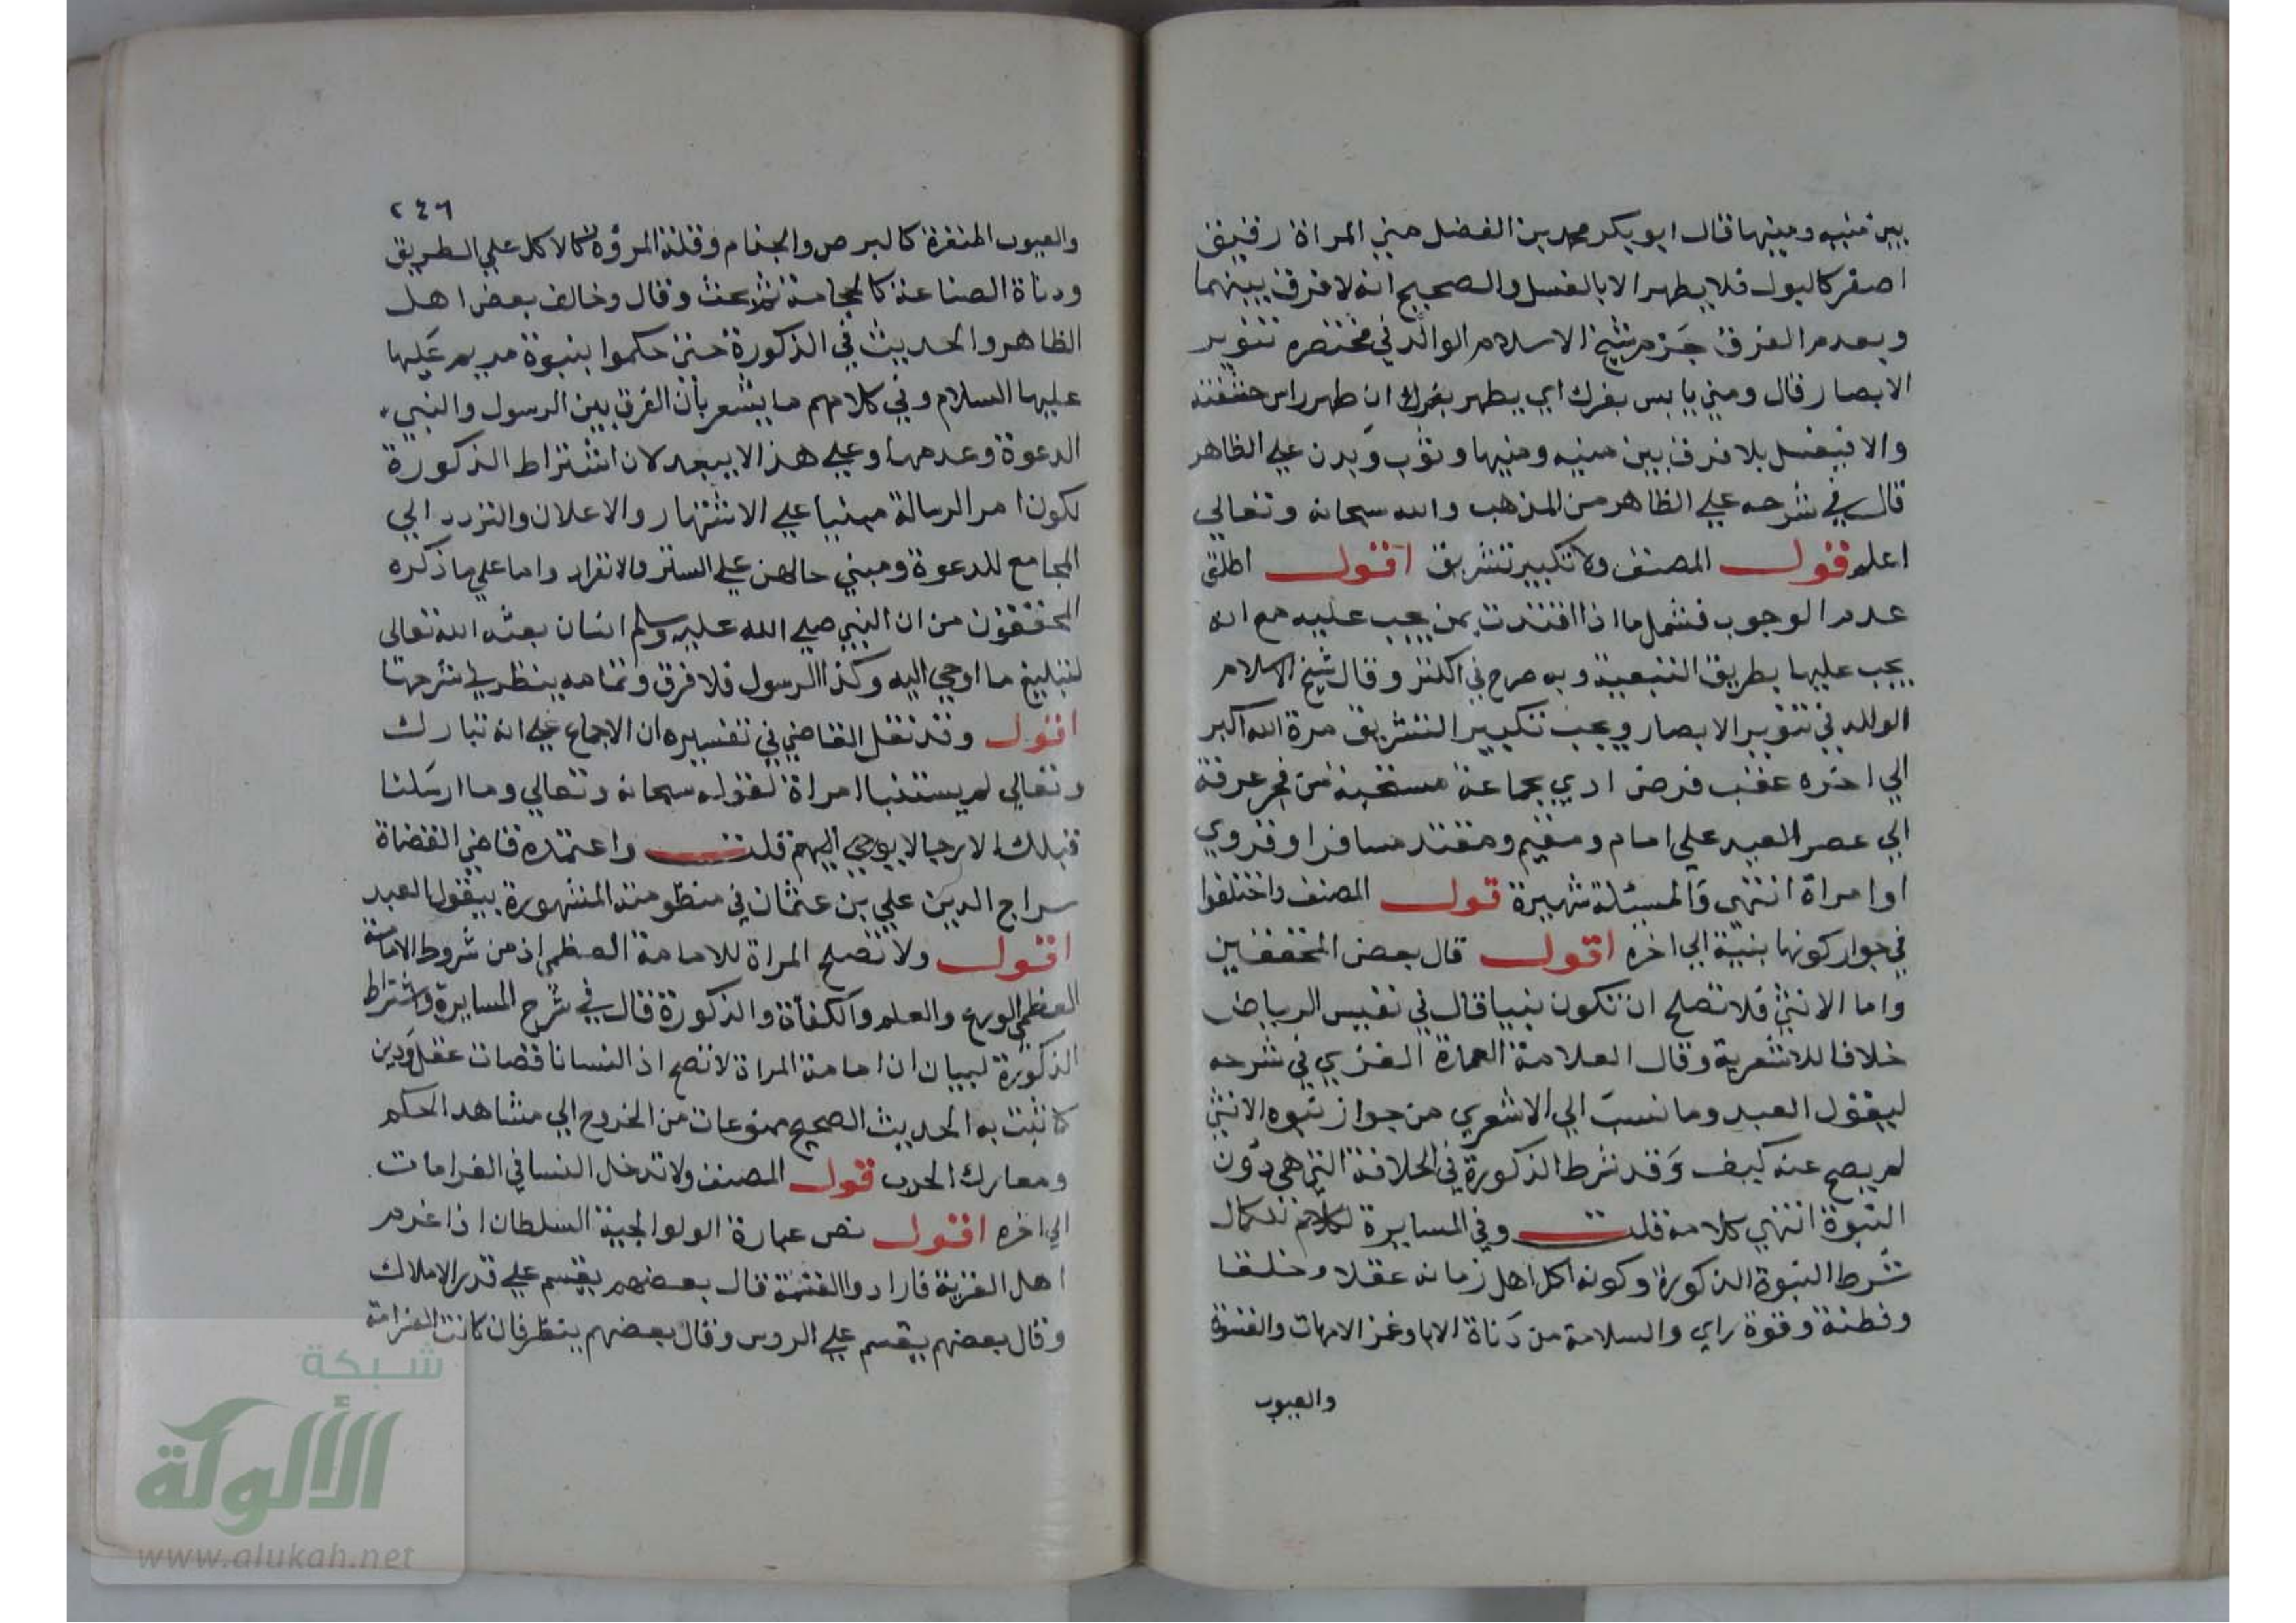 بين منيه ومنيها قال ابو بكر محمد بن الفضل مني المراة رقيق
اصفر كالبول فلا يطهر الا بالغسل والصحيح انه لا فرق بينهما
وبعدم الفرق جزم شيخ الاسلام الوالد في مختصره تنوير
الابصار قال ومني يابس بفرك اي يطهر بفرك ان طهر راس حشفته
والا فيغسل بلا فرق بين منيه ومنيها وثوب وبدن علي الظاهر
قال في شرحه علي الظاهر من المذهب والله سبحانه وتعالي
اعلم قول المصنف ولا تكبير تشريق اقول اطلق
عدم الوجوب فشمل ما اذا اقتدت بمن يجب عليه مع انه
يجب عليها بطريق التبعية وبه صرح في الكنز وقال شيخ الاسلام
الوالد في تنوير الابصار ويجب تكبير التشريق مرة الله اكبر
الي اخره عقب فرض ادي بجماعة مستحبة من فجر عرفة
الي عصر العيد علي امام ومقيم ومقتد مسافر او قروي
او امراة انتهي والمسئلة شهيرة قول المصنف واختلفوا
في جواز كونها بنية الي اخره اقول قال بعض المحققين
واما الانثي فلا تصلح ان تكون نبيا قال في نفيس الرياض
خلافا للاشعرية وقال العلامة العمدة الغزي في شرحه
ليقول العبد وما نسب الي الاشعري من جواز نبوه الانثي
لم يصح عنه كيف وقد شرط الذكورة في الخلافة التي هي دون
النبوة انتهي كلامه قلت وفي المسايرة للكمال
شرط النبوة الذكورة وكونه اكل اهل زمانه عقلا وخلقا
وفطنة وقوة راي والسلامة من دناة الابا وغمز الامهات والقسوة
والعيوب
٢٤٦
والعيوب المنفرة كالبرص والجذام وقلة المروة كالاكل علي الطريق
ودناة الصناعة كالحجامة ثم بحث وقال وخالف بعض اهل
الظاهر والحديث في الذكورة حتي حكموا بنبوة مريم عليها
عليها السلام وفي كلامهم ما يشعر بان الفرق بين الرسول والنبي
الدعوة وعدمها وعلي هذا لا يبعد لان اشتراط الذكورة
لكون امر الرسالة مبنيا علي الاشتهار والاعلان والتردد الي
المجامع للدعوة ومبني حالهن علي الستر والانقراد واما علي ما ذكره
المحققون من ان النبي صلي الله عليه وسلم انسان بعثه الله تعالي
لتبليغ ما اوحي اليه وكذا الرسول فلا فرق وتمامه ينظر في شرحها
اقول وقد نقل القاضي في تفسيره ان الاجماع علي انه تبارك
وتعالي لم يستنبا امراة لقوله سبحانه وتعالي وما ارسلنا
قبلك الا رجالا يوحي اليهم قلت واعتمده قاضي القضاة
سراج الدين علي بن عثمان في منظومته المشهورة بيقول العبد
اقول ولا تصلح المراة للامامة العظمي اذ من شروط الامامة
العظمي الورع والعلم والكفأة والذكورة قال في شرح المسايرة واشتراط
الذكورة لبيان ان امامة المراة لا تصح اذ النسا ناقصات عقل ودين
كا ثبت به الحديث الصحيح ممنوعات من الخروج الي مشاهد الحكم
ومعارك الحرب قول المصنف ولا تدخل النسا في الغرامات
الي اخره اقول نص عبارة الولوالجية السلطان اذا غرم
اهل القرية فارادوا القسمة قال بعضهم يقسم علي قدر الاملاك
وقال بعضهم يقسم علي الروس وقال بعضهم ينظر فان كانت الغرامة
شبكة
الألوكة
www.alukah.net